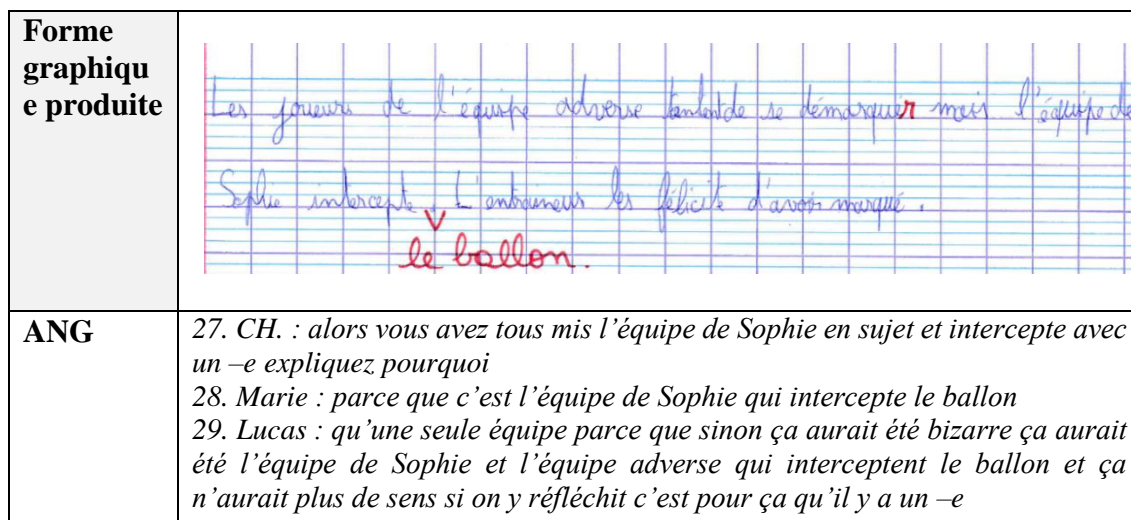 Forme
graphiqu
e produite
Les joueurs de l'équipe adverse tentent de se démarquer mais l'équipe de
Sophie intercepte. L'entraineur les félicite d'avoir marqué.
le ballon.
ANG
27. CH. : alors vous avez tous mis l’équipe de Sophie en sujet et intercepte avec
un –e expliquez pourquoi
28. Marie : parce que c’est l’équipe de Sophie qui intercepte le ballon
29. Lucas : qu’une seule équipe parce que sinon ça aurait été bizarre ça aurait
été l’équipe de Sophie et l’équipe adverse qui interceptent le ballon et ça
n’aurait plus de sens si on y réfléchit c’est pour ça qu’il y a un –e